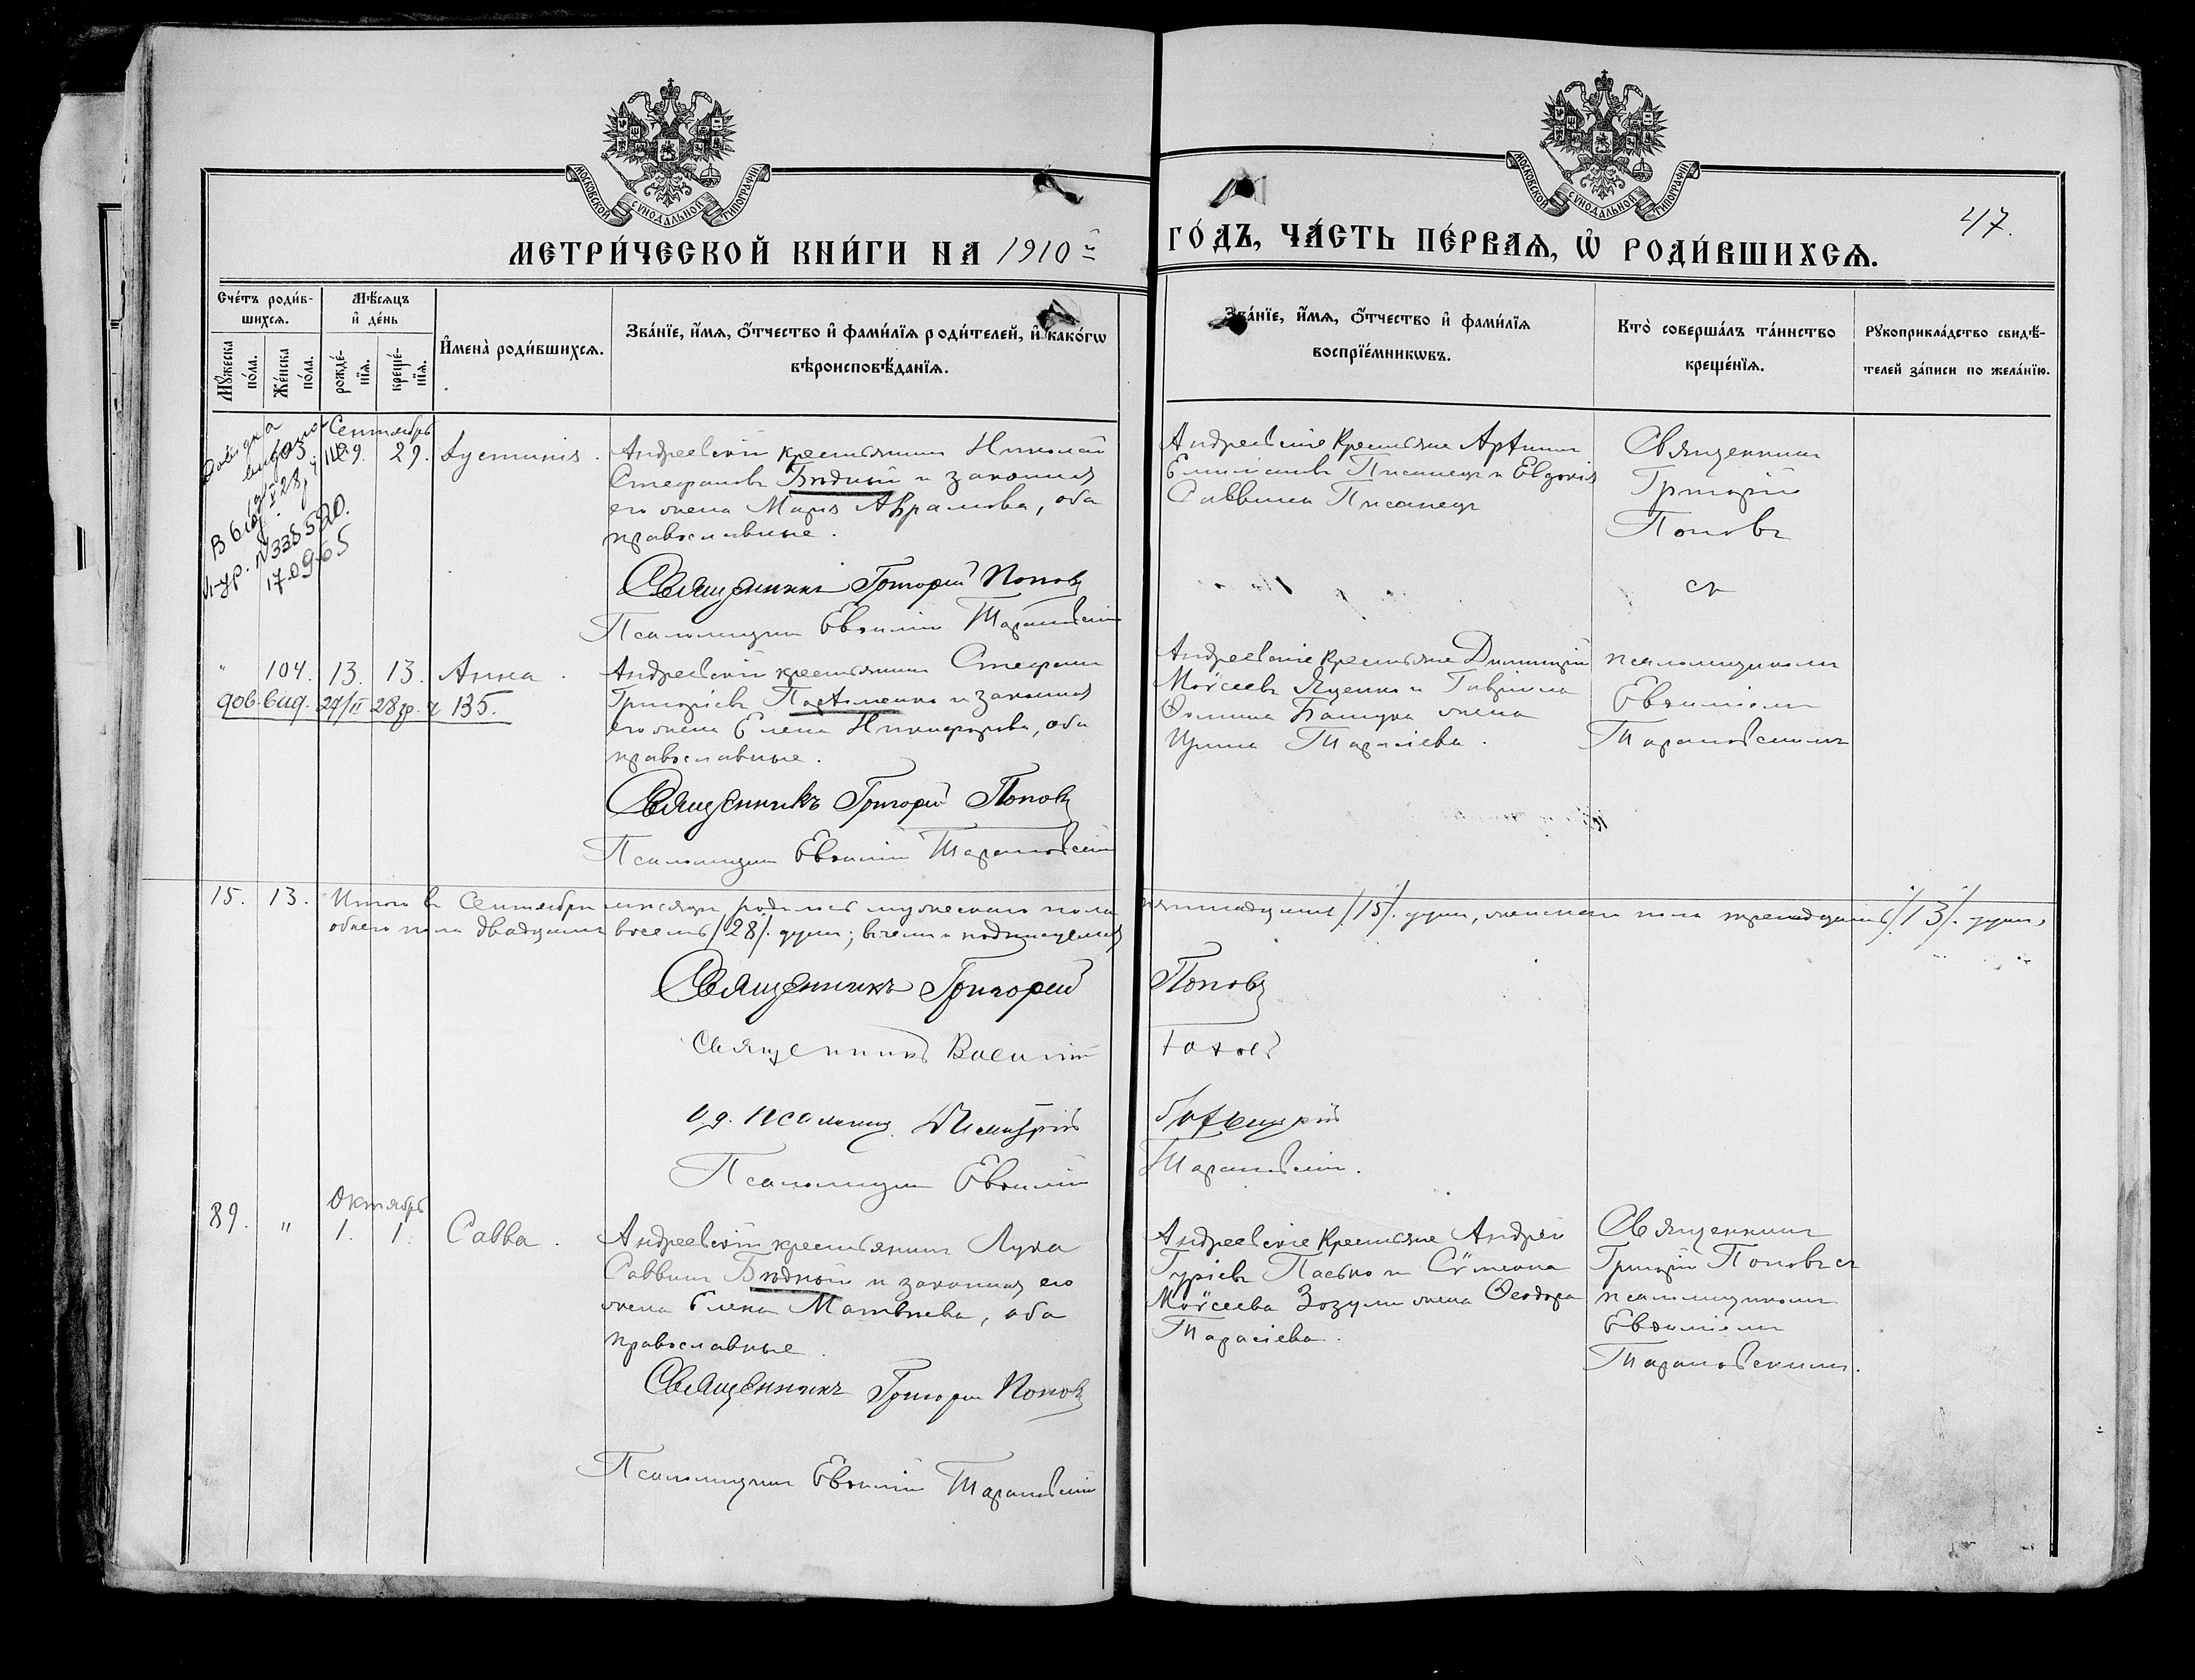 МОСКОВСКОЙ СѴНОДАЛЬНОЙ ТИПОГРАФІИ
МОСКОВСКОЙ СѴНОДАЛЬНОЙ ТИПОГРАФІИ
47.
МЕТРИ́ЧЕСКОЙ КНИ́ГИ НА 1910й
ГО́ДЪ, ЧА́СТЬ ПЕ́РВАѦ, Ѡ РОДИ́ВШИХСѦ.
Сче́тъ роди́в-
шихсѧ.
Мꙋ́жеска по́ла.
Же́нска по́ла.
Мѣ́сѧцъ
и҆ де́нь
рожде́-
нїѧ.
креще́-
нїѧ.
И҆мена̀ роди́вшихсѧ.
Зва́нїе, и҆́мѧ, ѻ҆́тчество и҆ фами́лїѧ роди́телей, и҆ како́гѡ
вѣроисповѣ́данїѧ.
Зва́нїе, и҆́мѧ, ѻ҆́тчество и҆ фами́лїѧ
воспрїе́мникѡвъ.
Кто̀ соверша́лъ та́инство
креще́нїѧ.
Рꙋкоприкла́дство свидѣ́-
телей за́писи по жела́нїю.
Сентябрь
103. 29. 29. Іустинія.
Андреевскій крестьянинъ Николай
Стефановъ Бѣдный и законная
его жена Марія Авраамова, оба
православные.
Священникъ Григорій Поповъ
Псаломщикъ Евѳимій Тарановскій
Андреевскіе крестьяне
Писанецъ и Евдокія
Саввина Писанецъ
Священникъ
Григорій
Поповъ
съ
17.09.65
" 104. 13. 13. Анна.
дов. вид. 27/II 28 р. ч 135.
Андреевскій крестьянинъ Стефанъ
Григоріевъ и законная
его жена Елена Никифорова, оба
православные.
Священникъ Григорій Поповъ
Псаломщикъ Евѳимій Тарановскій
Андреевскіе крестьяне Димитрій
Моѵсеевъ Яценко и Гавріила
Ѳомина жена
Ирина Тарасіева.
псаломщикомъ
Евѳиміемъ
Тарановскимъ
15. 13. Итого въ Сентябрѣ мѣсяцѣ родилось мужескаго пола пятнадцать /15/. душъ, женскаго пола тринадцать /13/. душъ,
обоего пола двадцать восемь /28/. душъ; въ чемъ и подписуемся
Священникъ Григорій Поповъ
Священникъ Василій
и. д. псаломщ. Димитрій
Псаломщикъ Евѳимій Тарановскій.
Октябрь
89. " 1. 1. Савва.
Андреевскій крестьянинъ Лука
Саввинъ Бѣдный и законная его
жена Елена Матвѣева, оба
православные.
Священникъ Григорій Поповъ
Псаломщикъ Евѳимій Тарановскій
Андреевскіе крестьяне Андрей
Гуріевъ Пасько и Сѵмеона
Моѵсеева Зозули жена Ѳеодора
Тарасіева.
Священникъ
Григорій Поповъ съ
псаломщикомъ
Евѳиміемъ
Тарановскимъ.